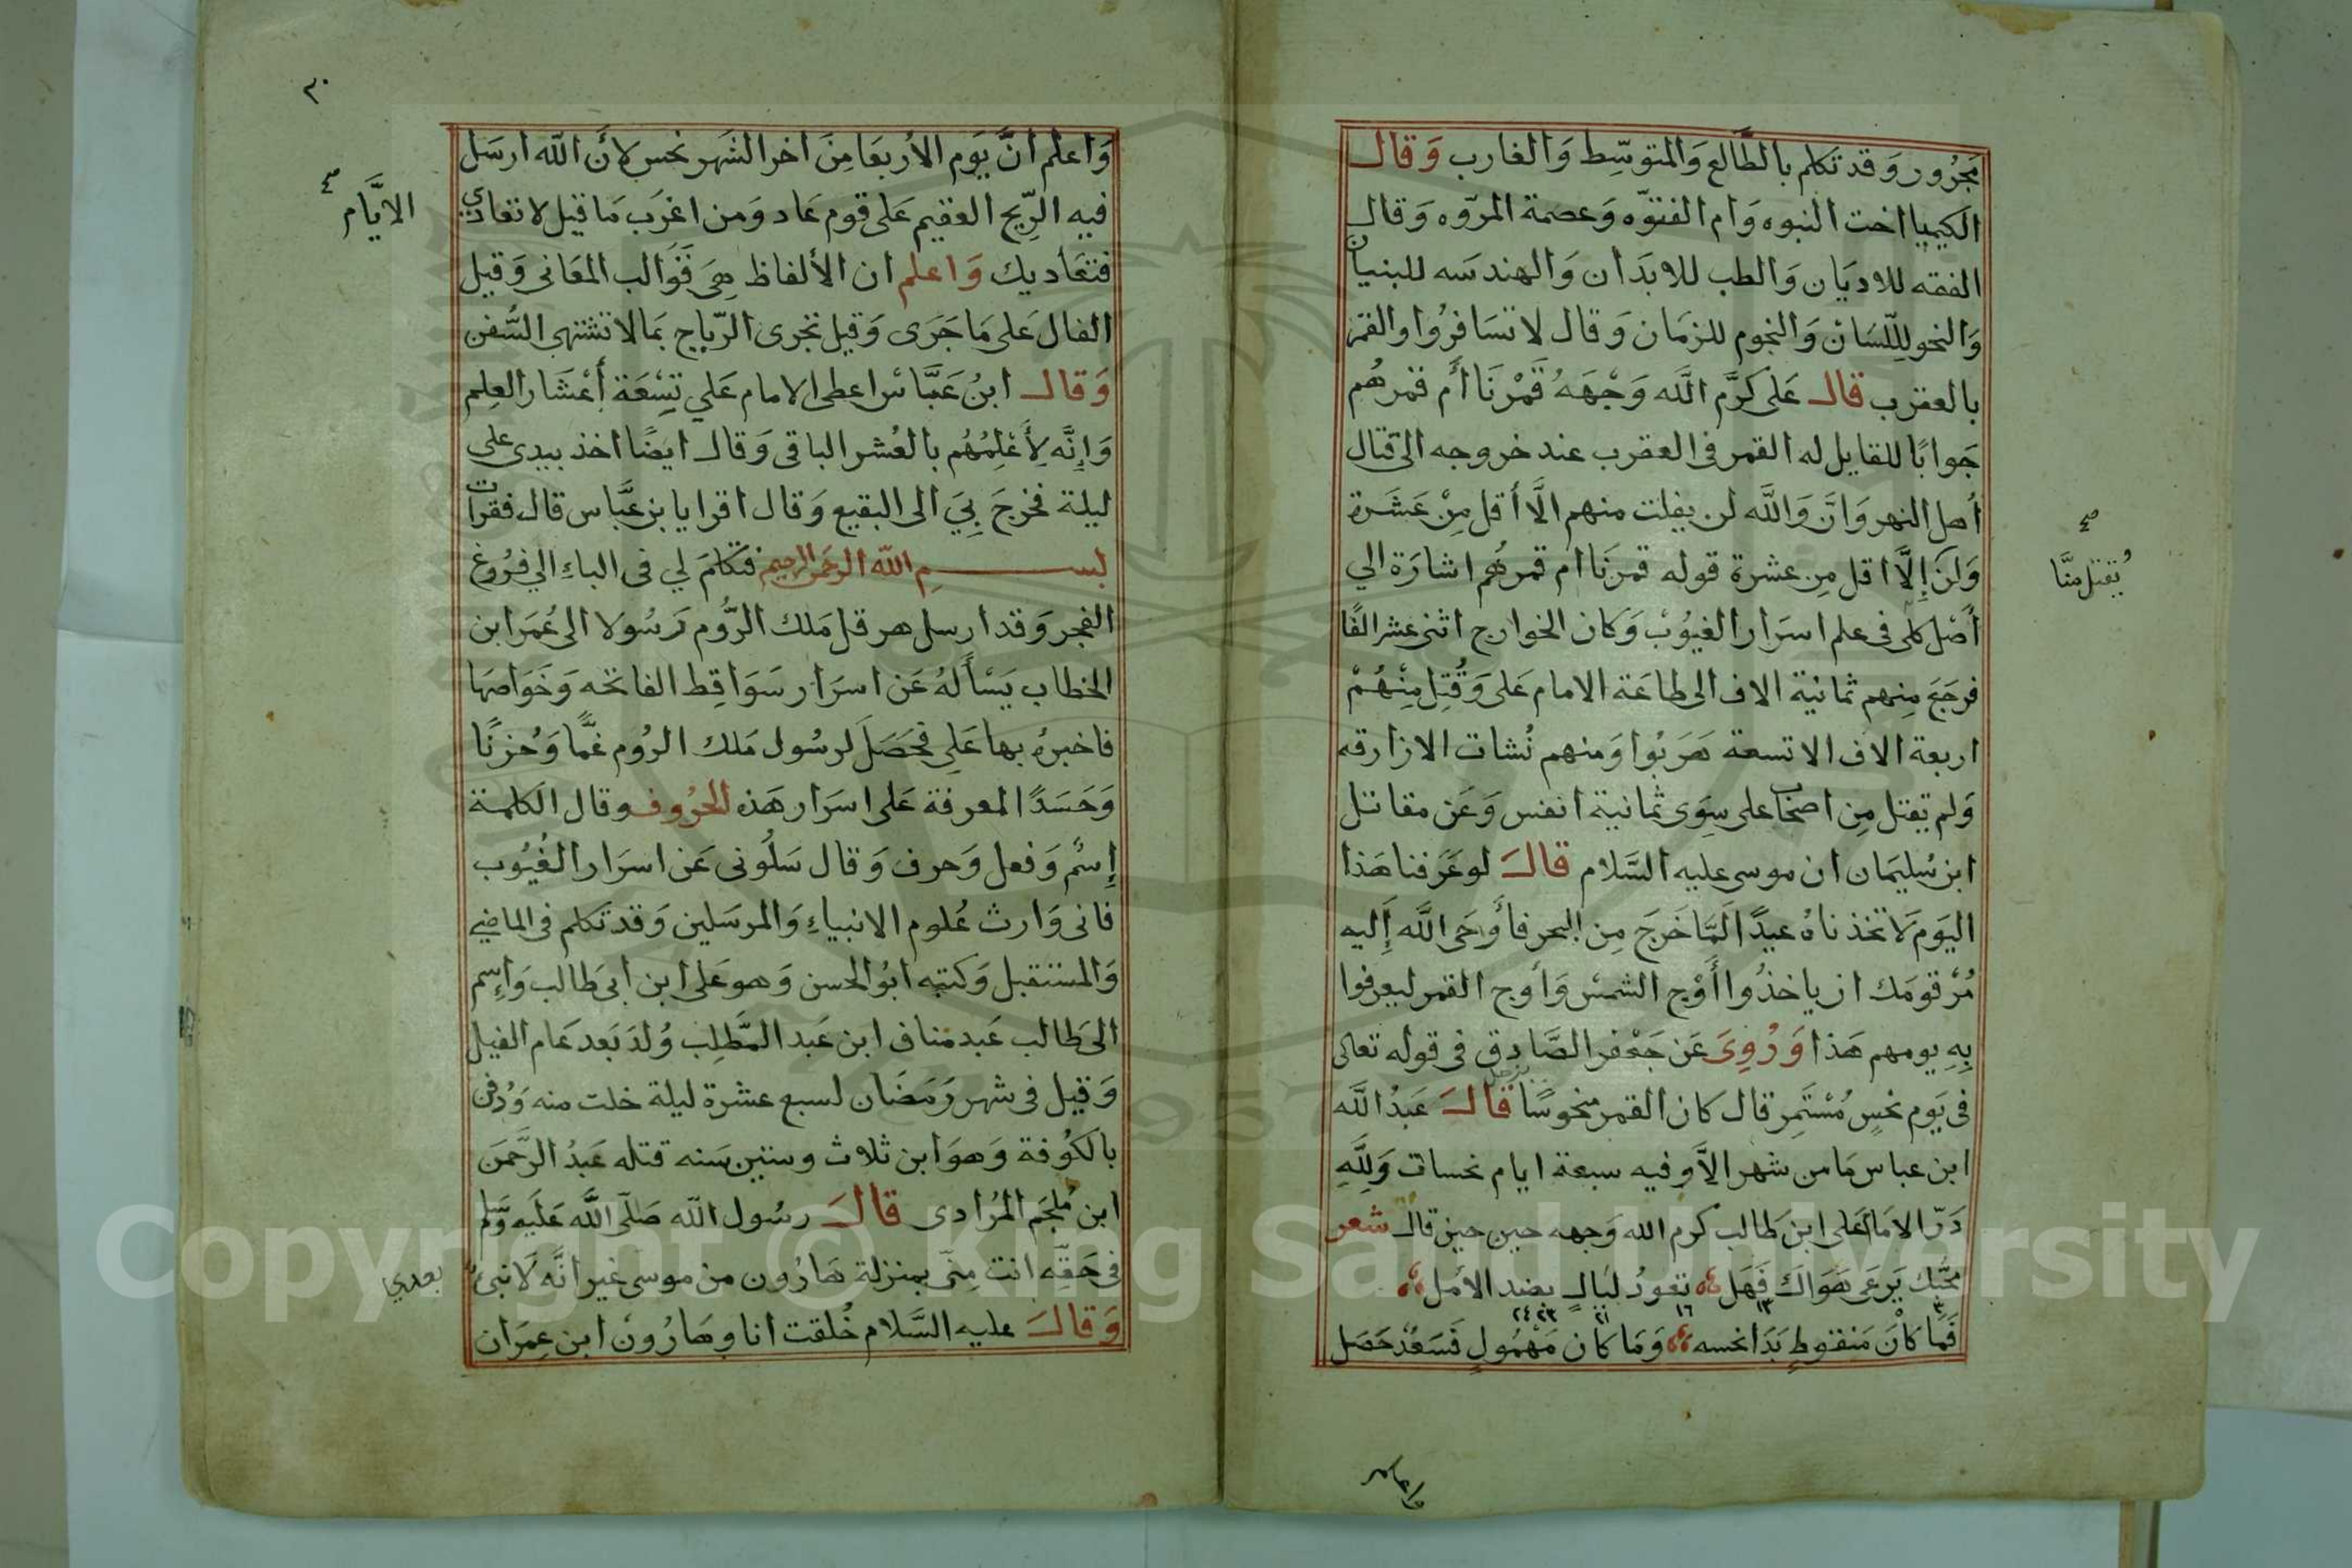 مَجرُور وَقد تَكلم بالطَّالع وَالمتوسِّط وَالغارب وَقال
الكيميا اخت النبوه وَام الفتوّه وَعصمة المرّوه وَقال
الفقه للاديَان وَالطب للابدَان وَالهندسَه للبنيان
وَالنحو لللّسَان وَالنجوم للزمَان وَقال لا تسَافرُوا والقمَر
بالعقرب قال عَلى كرَّم اللَّه وَجْهَهُ قَمْرنَا أَم قمرهُم
جَوابًا للقايل له القمر فى العقرب عند خروجه الى قتال
أهل النهروَانَّ وَاللَّه لن يفلت منهم الَّا أقل مِنْ عَشَرة
وَلَن إِلَّا اقل مِن عشرة قوله قمرنَا ام قمرهُم اشارَة الي
يُقتل منَّا
أَصْل كلى فى علم اسرَار الغيُوبْ وَكان الخوارج اثنى عشر الفًا
فرجَعَ مِنهم ثمانية الاف الى طاعَة الامام عَلى وَقُتِل مِنْهُمْ
اربعة الاف الا تسعة هَرَبُوا وَمنهم نُشات الازارقه
وَلم يقتل مِن اصحاب على سِوَى ثَمانية انفس وَعَن مقاتل
ابن سُليمَان ان موسى عليه السَّلام قال لو عَرَفنا هَذا
اليَوم لَاتخَذناهُ عيدًا لَمَّا خَرجَ مِن البحر فأوحَى اللَّه إليه
مُرْ قومَك ان ياخذُوا أَوْج الشمسْ وَأوج القمر ليعرفوا
بِهِ يومهم هَذا وَرُوِىَ عَن جَعْفر الصَّادِق فى قوله تعالى
فى يَوم نحسٍ مُسْتَمِر قال كان القمر منحوسًا قال عَبدُ اللَّه
ابن عباس مَا من شهر الاَّ وفيه سبعة ايام نحسات وَلِلَّهِ
دَرّ الامَام عَلى ابن طالب كرم الله وَجهه حين قال شعر
مُحبّك يَرعَى هَوَاكَ فَهَل تعودُ ليَالٍ بضد الأمل
٣ ١٣ ١٦ ٢١ ٢٣ ٢٤
فَمَا كاْنَ مَنقوطٍ بَدَا نحسه وَمَا كان مَهْمُولٍ فَسَعْدٌ حَصَل
٣٠
وَاعلم انَّ يَوم الأربعَا مِنَ اخر الشهر نحس لأنَ اللّه ارسَل
فيه الرِّيح العقيم عَلى قوم عَاد وَمن اغرَب مَا قيل لا تعادي
الايَّام
فتعَاديك وَاعلم ان الألفاظ هِىَ قوَالب المعَانى وَقيل
الفال عَلى مَا جَرَى وَقيل تجرى الرّياح بمَا لا تشتهى السُّفن
وَقال ابنُ عَبَّاسْ اعطى الامام عَلي تِسْعَة أعْشَار العِلم
وَإِنَّه لِأَعْلمُهُم بالعُشر الباقى وَقال ايضًا اخذ بيدى على
ليلة فخرجَ بِيَ الى البقيع وَقال اقرا يا بن عبَّاس قال فقرات
بســـم اللّه الرحمَن الرحيم فتكلمَ لي فى الباءِ الي فرُوغ
الفجر وَقد ارسل هرقل مَلك الرُّوم رَسُولا الى عُمَر ابن
الخطاب يَسْأَلهُ عَن اسرَار سَوَاقِط الفاتحه وَخَوَاصها
فاخبرهُ بها عَلِى فحَصَل لرسُول مَلك الرُوم غمًّا وَحُزنًا
وَحَسَدًا لمعرفة عَلى اسرَار هَذه الحرُوف وقال الكلمة
إِسمٌ وَفعل وَحرف وَقال سَلُونى عَن اسرَار الغيُوب
فانى وَارث عُلوم الانبياءِ وَالمرسَلين وَقد تكلم فى الماضي
وَالمستقبل وَكنيه ابوُ الحسن وَهو عَلى ابن ابى طالب وَاسِم
ابى طالب عَبد مناف ابن عَبد المَّطلِب وُلدَ بَعد عَام الفيل
وَقيل فى شهر رَمَضَان لسبع عشرة ليلة خلت منه وَدُفن
بالكوُفة وَهوَ ابن ثلاث وستين سَنه قتله عَبدُ الرَّحمَن
ابن مُلجَم المُرَادى قال رسُول اللّه صَلّى اللَّه عَليه وَسَلم
فى حَقّه انت مِنّى بمنزلة هَارُون من موسَى غير انَّه لَا نبىّ
بعدي
وَقال عليه السَّلام خُلقت انا وهَارُونْ ابن عِمرَان